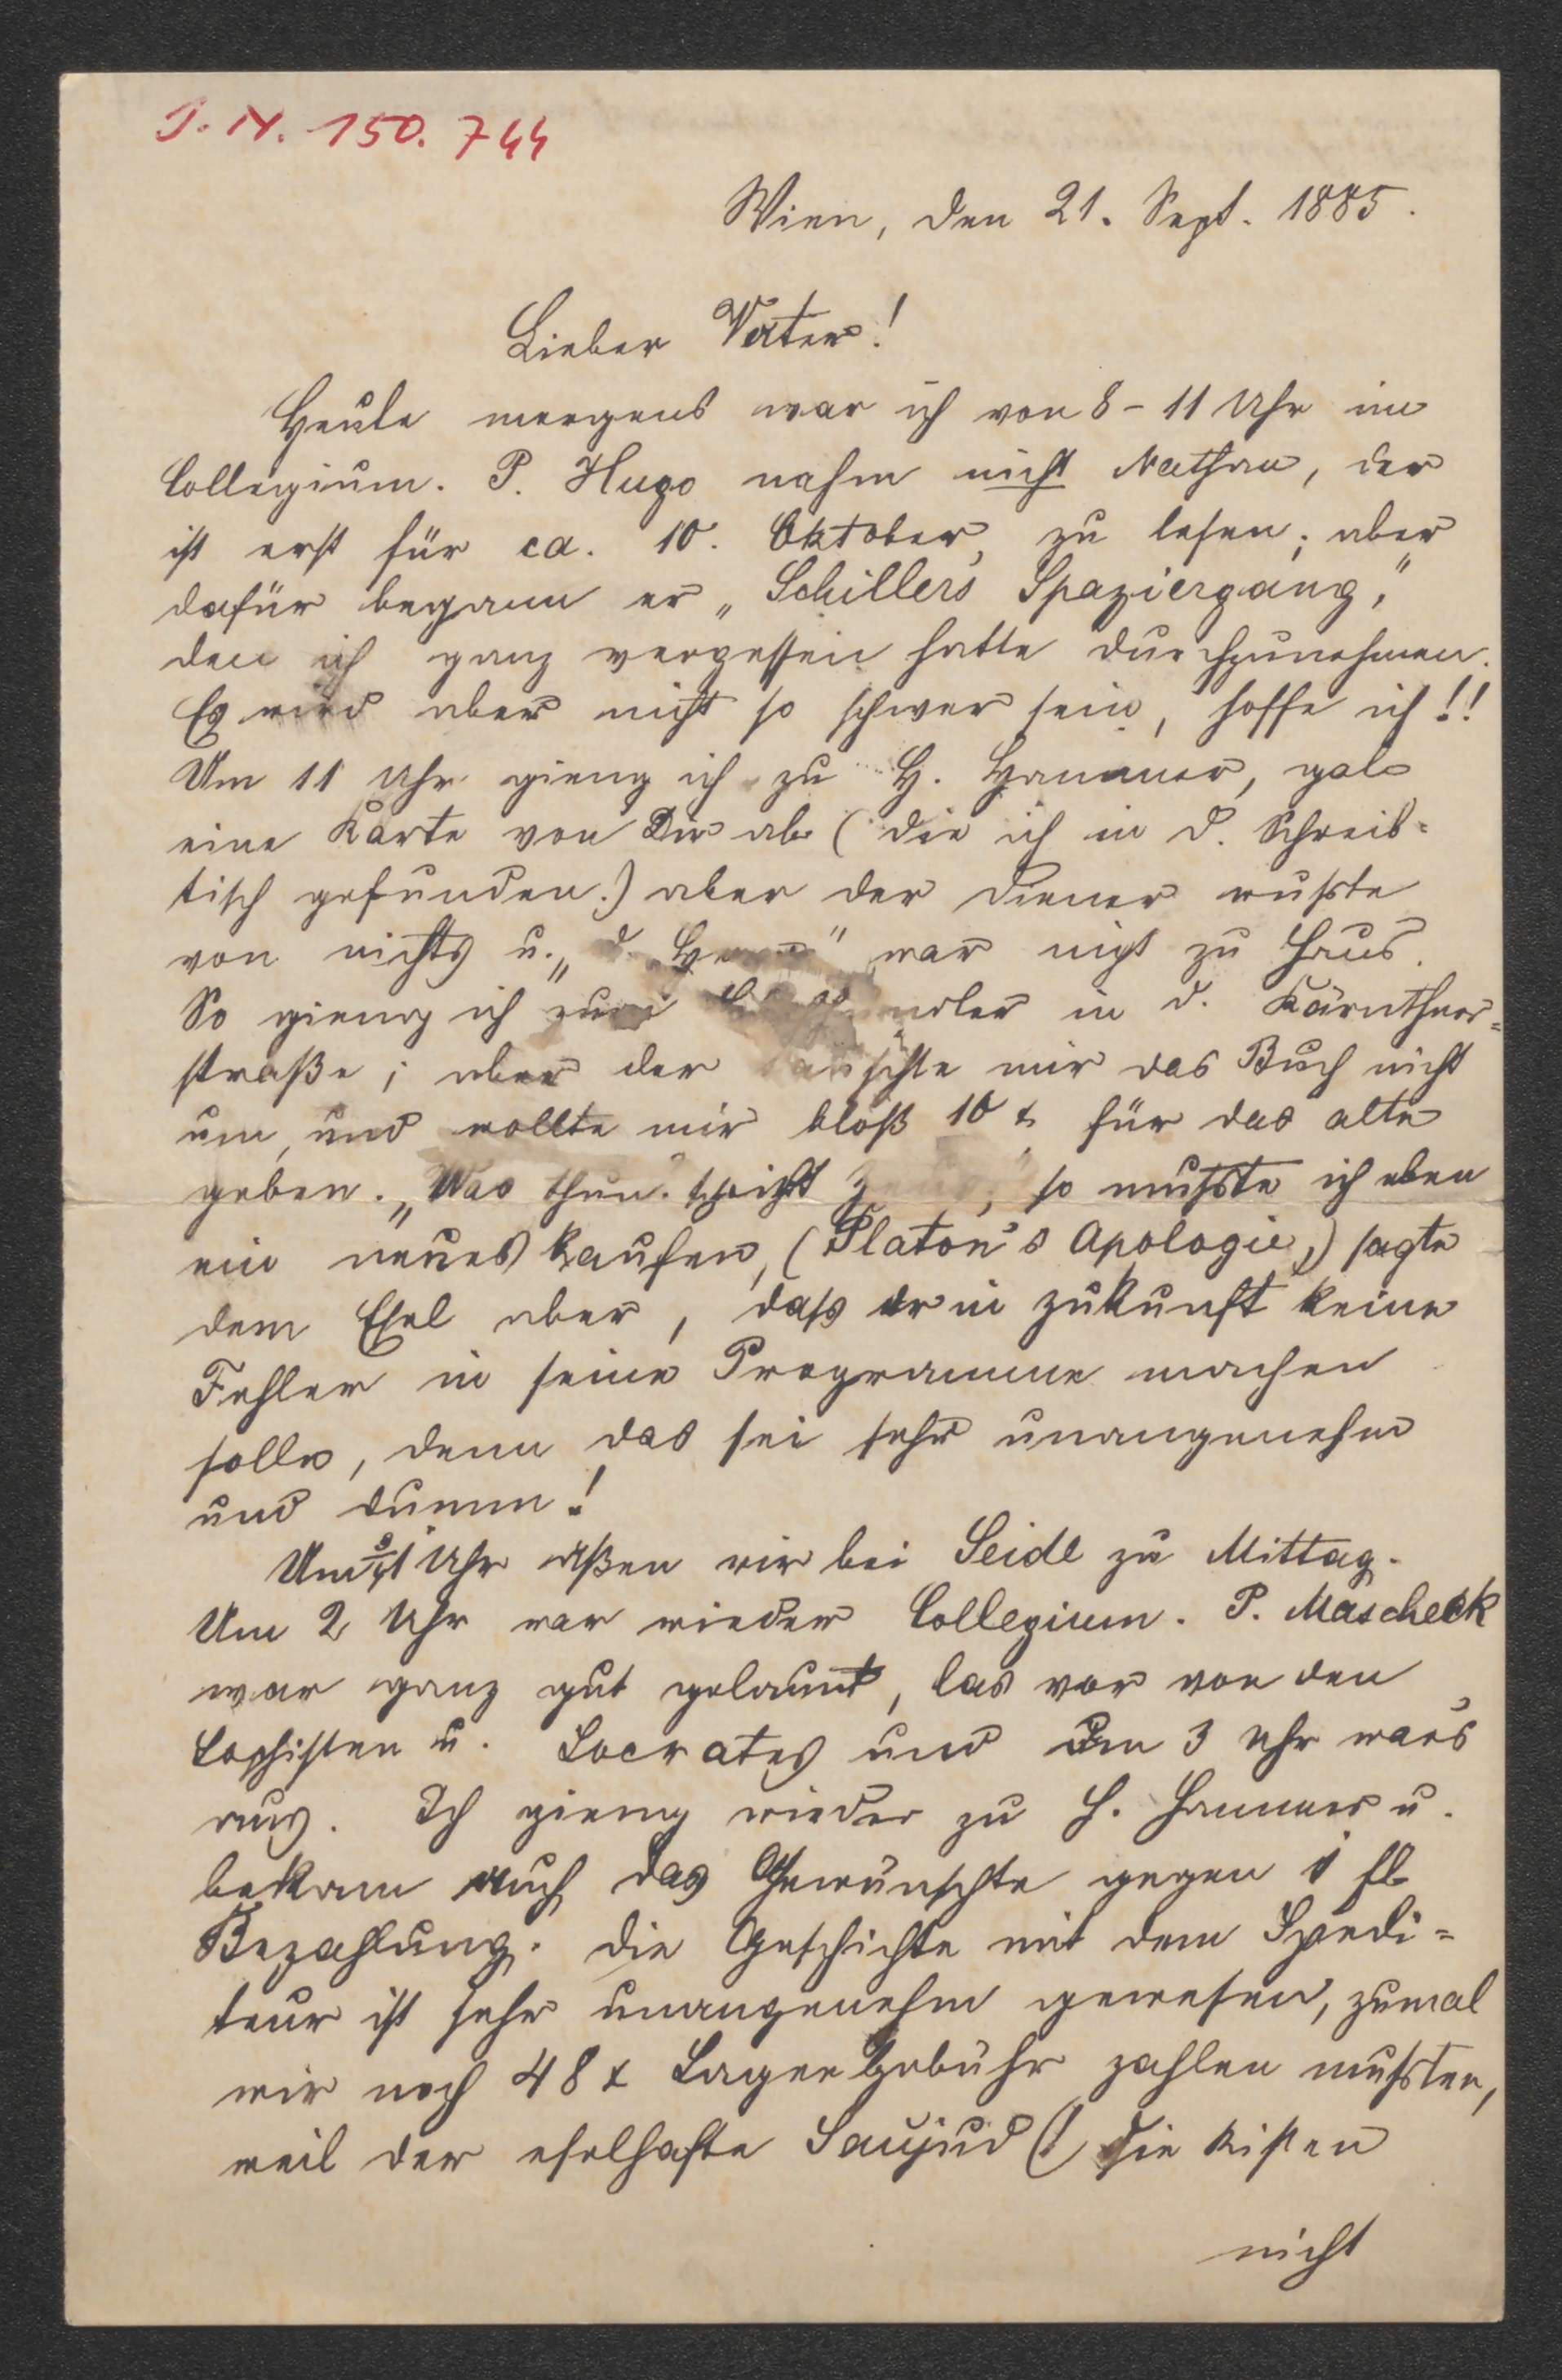 J. N. 150.744
Wien, den 21. Sept. 1885.
Lieber Vater!
Heute morgens war ich von 8-11 Uhr im
Collegium. P. Hugo nahm nicht Nathan, der
ist erst für ca. 10. Oktober, zu lesen; aber
dafür begann er „Schillers Spaziergang,"
den ich ganz vergessen hatte durchzunehmen.
Es wird aber nicht so schwer sein, hoffe ich!!
Um 11 Uhr gieng ich zu H. Hammer, gab
eine Karte von Dir ab (die ich in d. Schreib=
tisch gefunden.) aber der Diener wußte
von nichts u. „d. Herr" war nicht zu Haus.
So gieng ich zum in d. Kärnthner=
straße; aber der tauschte mir das Buch nicht
um, und wollte mir bloß 10 x für das alte
geben. „Was thun? spricht Zeus", so mußte ich eben
ein neues kaufen, (Platon's Apologie,) sagte
dem Esel aber, daß er in Zukunft keine
Fehler in seine Programme machen
solle, denn das sei sehr unangenehm
und dumm!
Um 3/4 1 Uhr aßen wir bei Seidl zu Mittag.
Um 2 Uhr war wieder Collegium. P. Mascheck
war ganz gut gelaunt, las vor von den
Sophisten u. Socrates und um 3 Uhr war's
aus. Ich gieng wieder zu H. Hammer u.
bekam auch das Gewünschte gegen 1 fl
Bezahlung. Die Geschichte mit dem Spedi=
teur ist sehr unangenehm gewesen, zumal
wir noch 48 x Lagergebühr zahlen mußten,
weil der eselhafte Saujud (!) die Kisten
nicht